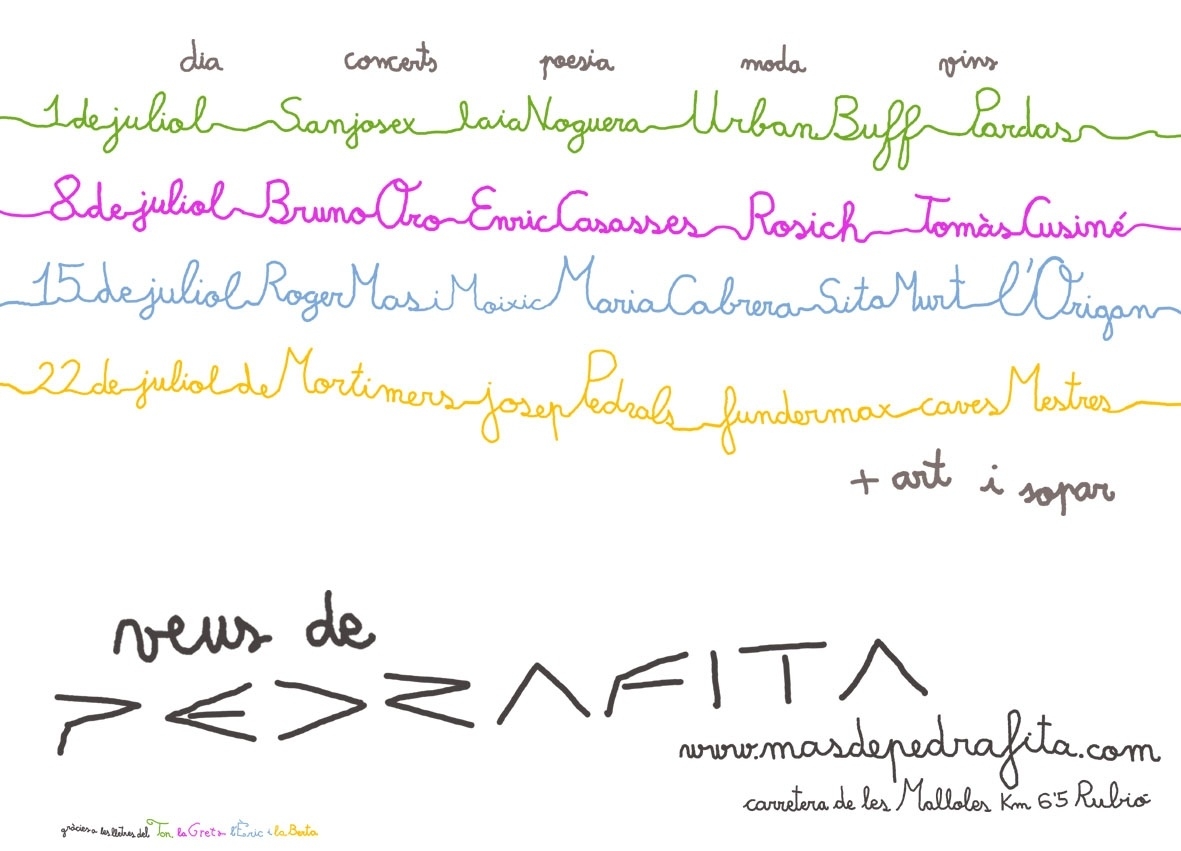 dia concerts poesia moda vins
1 de juliol Sanjosex laia Noguera Urban Buff Pardas
8 de juliol Bruno Oro Enric Casasses Rosich Tomàs Cusiné
15 de juliol Roger Mas i Moixic Maria Cabrera Sita Murt l'Origan
22 de juliol de Mortimers josep Pedrals fundermax caves Mestres
+ art i sopar
veus de
PEDRAFITA
www.masdepedrafita.com
carretera de les Malloles Km 6'5 Rubió
gràcies a les lletres del Ton, la Greta, l'Enric i la Berta